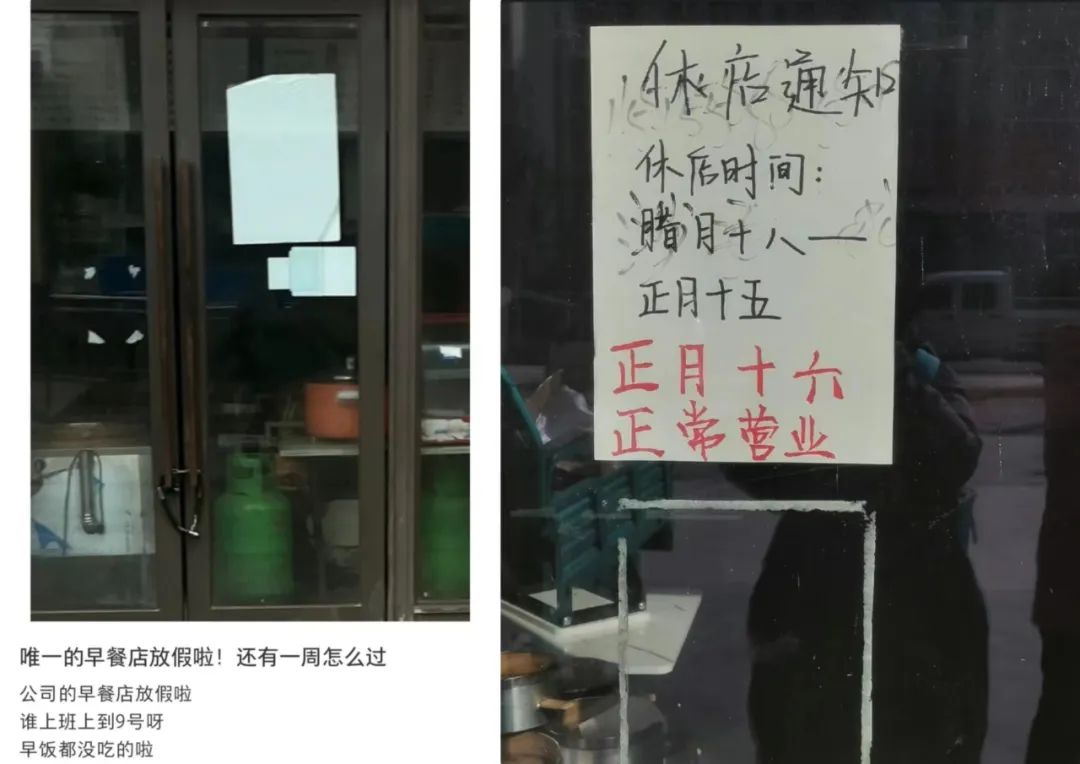 唯一的早餐店放假啦！还有一周怎么过
公司的早餐店放假啦
谁上班上到9号呀
早饭都没吃的啦
休店通知
休店时间：
腊月十八——
正月十五
正月十六
正常营业